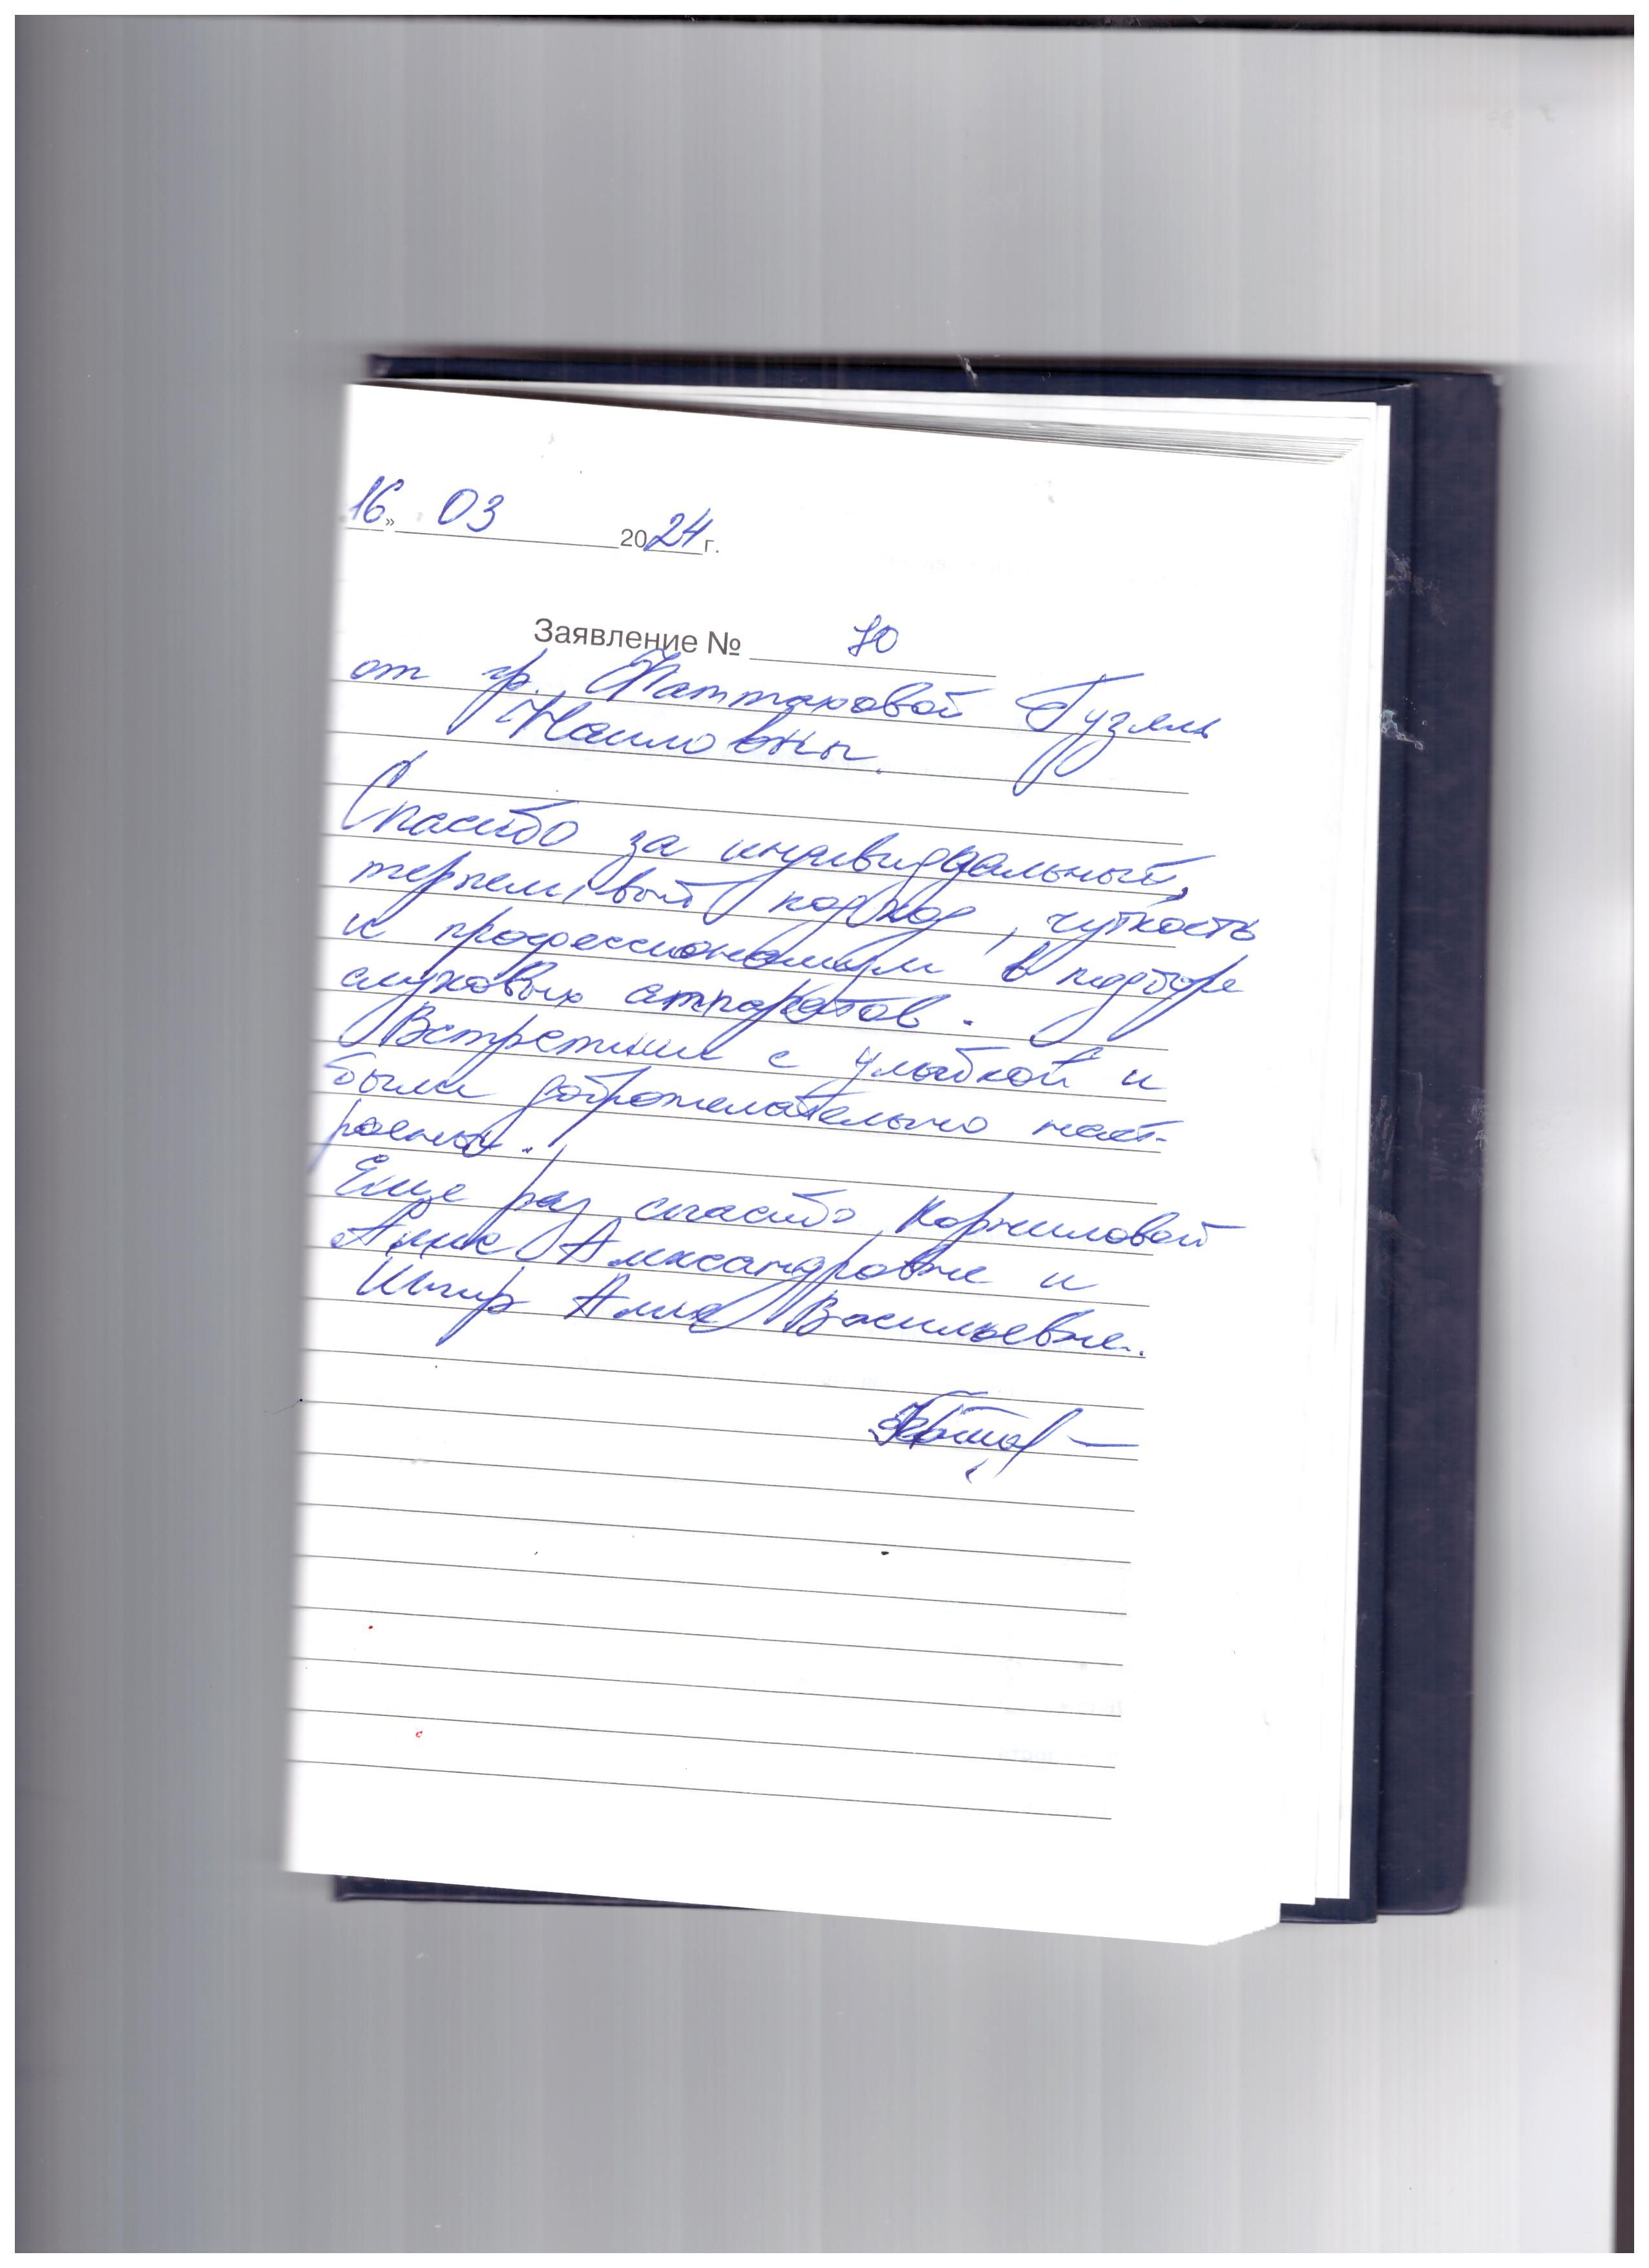 16» 03 2024г.
Заявление № 70
от гр. Фаттаховой Гузяль
Наиловны.
Спасибо за индивидуальный,
терпеливый подход, чуткость
и профессионализм в подборе
слуховых аппаратов.
Встретили с улыбкой и
были доброжелательно наст-
роены.
Еще раз спасибо Корниловой
Анне Александровне и
Шпир Анне Васильевне.